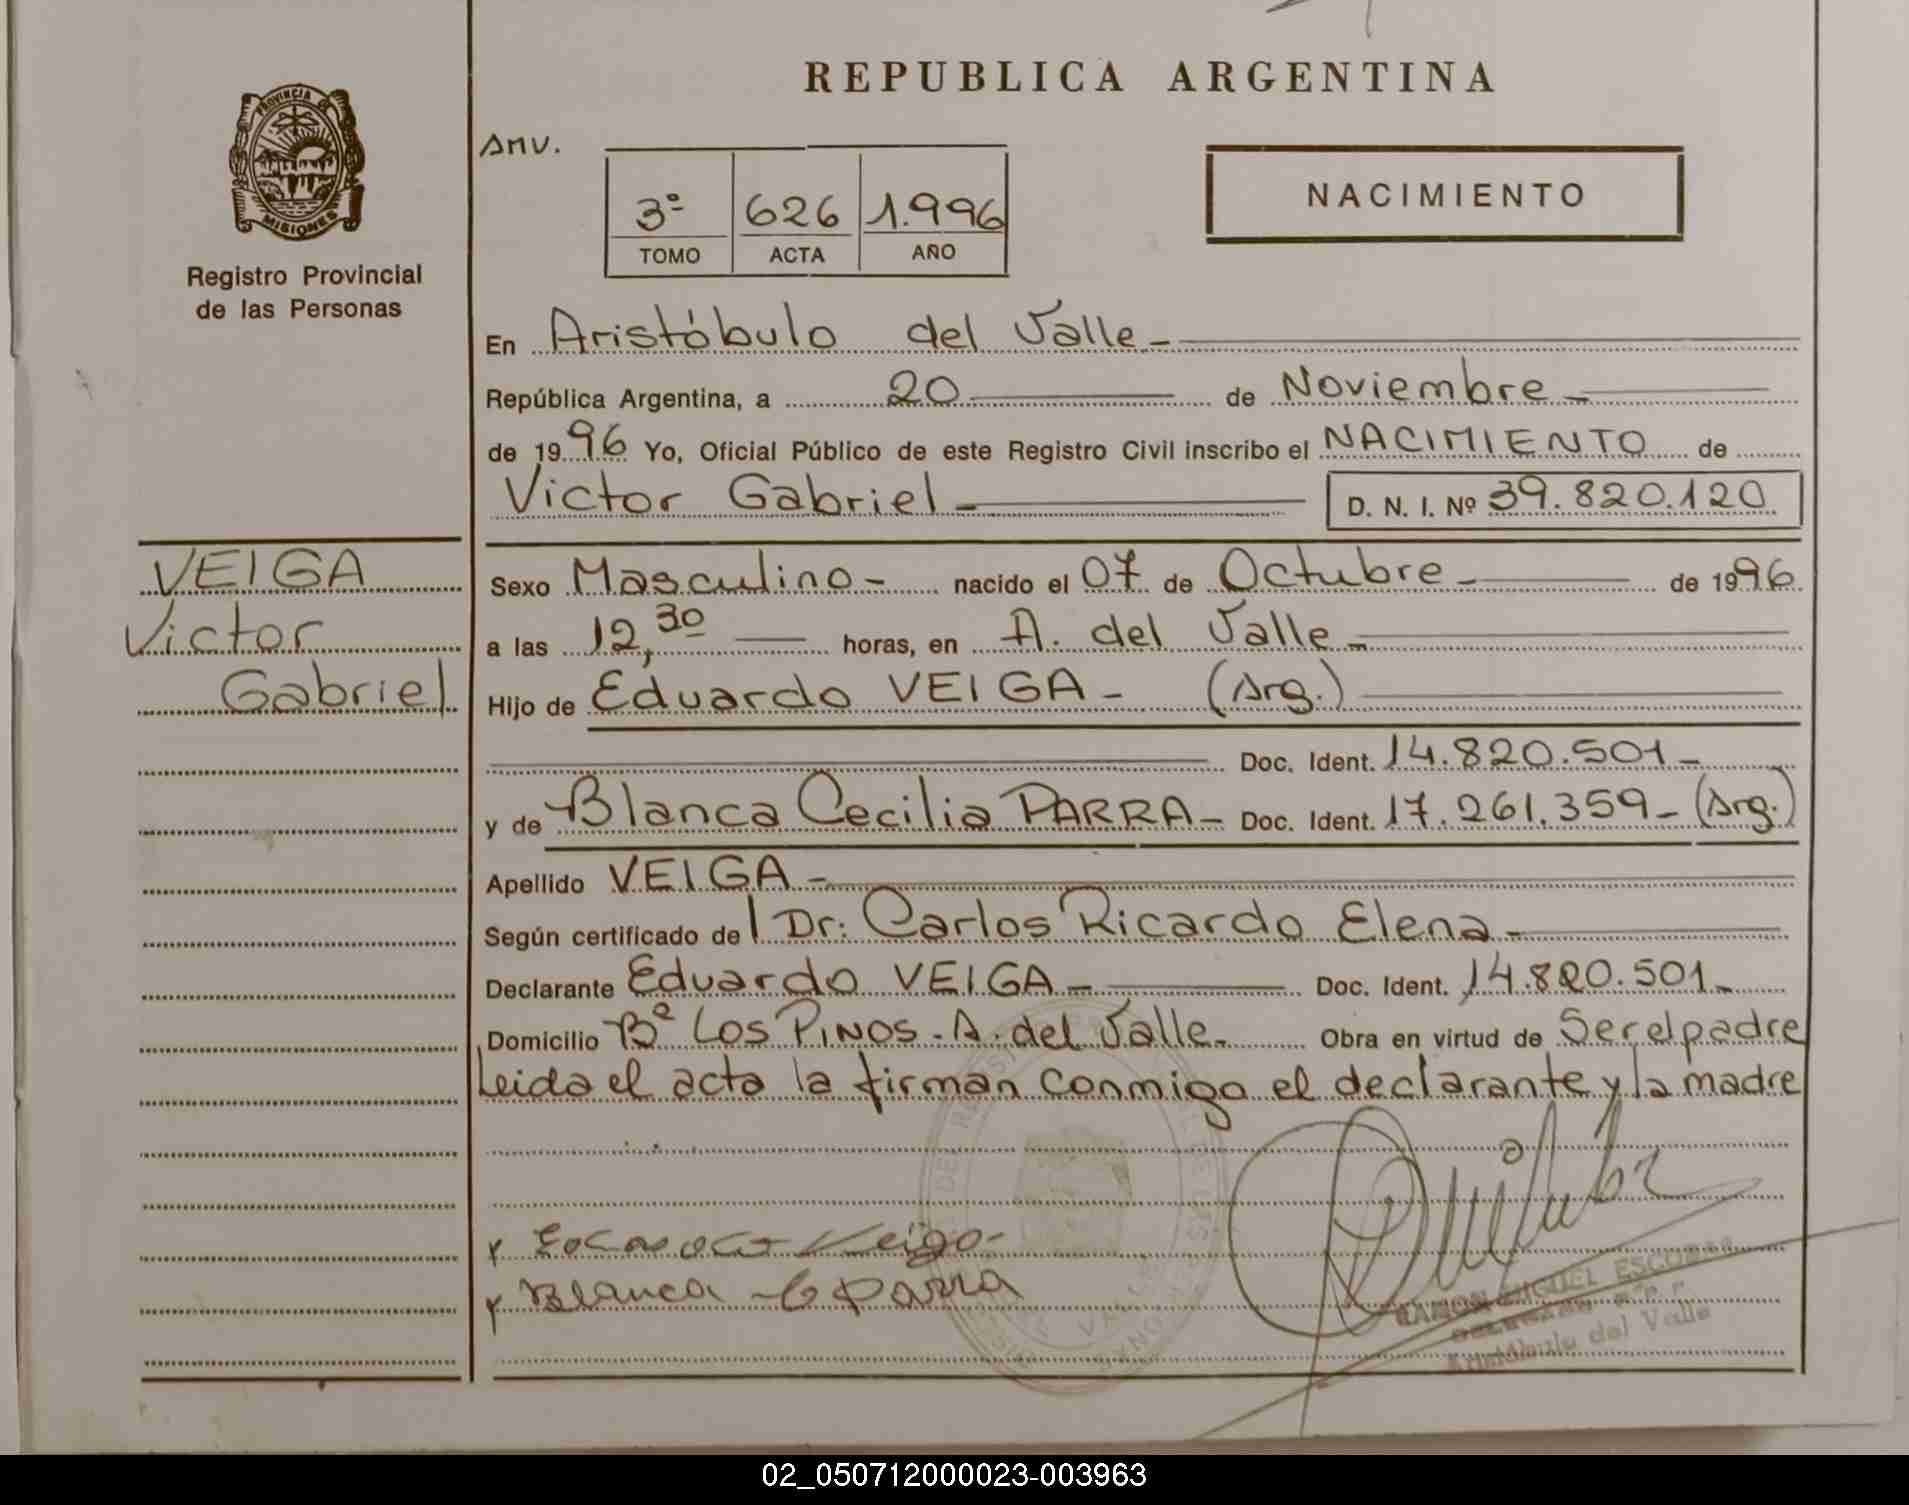 REPUBLICA ARGENTINA
PROVINCIA DE
MISIONES
Registro Provincial
de las Personas
Anv.
3º 626 1.996
TOMO ACTA AÑO
NACIMIENTO
En Aristóbulo del Valle-
República Argentina, a 20 de Noviembre-
de 1996 Yo, Oficial Público de este Registro Civil inscribo el NACIMIENTO de
Victor Gabriel- D. N. I. Nº 39.820.120
VEIGA
Victor
Gabriel
Sexo Masculino- nacido el 07 de Octubre- de 1996.
a las 12,30 horas, en A. del Valle-
Hijo de Eduardo VEIGA- (Arg.)
Doc. Ident. 14.820.501-
y de Blanca Cecilia PARRA- Doc. Ident. 17.261.359-(Arg.)
Apellido VEIGA-
Según certificado de Dr: Carlos Ricardo Elena-
Declarante Eduardo VEIGA- Doc. Ident. 14.820.501-
Domicilio Bº Los PINOS-A.del Valle- Obra en virtud de Ser el padre
Leida el acta la firman conmigo el declarante y la madre
Veiga
Blanca C Parra
RAMON MIGUEL ESCOBAR
Aristóbulo del Valle
02_050712000023-003963